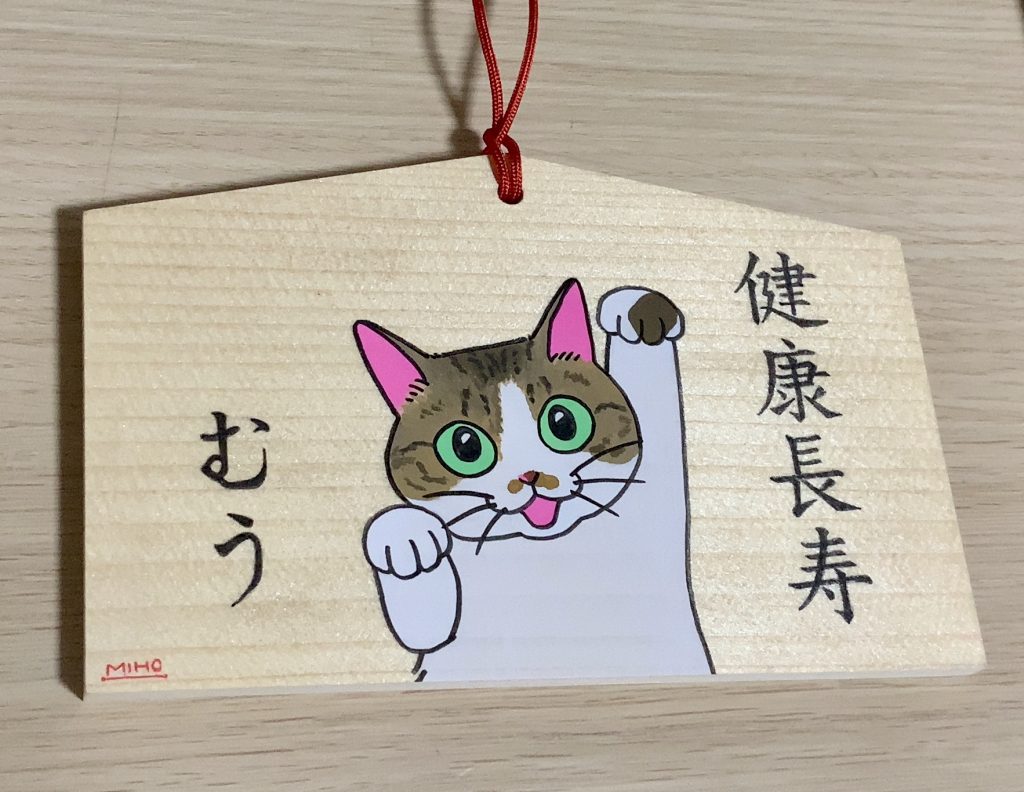 健康長寿
むう
MIHO